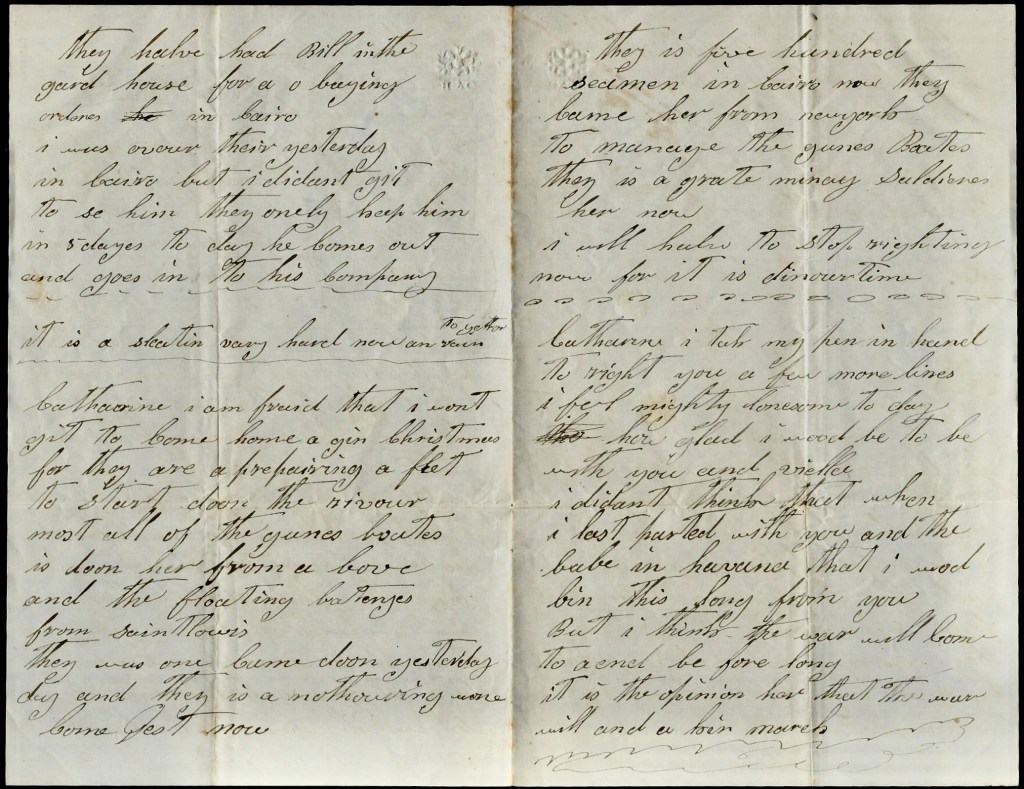 they halve had Bill in the
gard house for a o baying
ordenes he in Cairo
i was over their yesterday
in Cairo but i didant git
to se him they onely keep him
in 5 dayes to day he Comes out
and goes in to his Company
it is a sleatin vary hard now an rain
to gether
Catharine i am fraid that i wont
git to Come home a gin Christmas
for they are a prepairing a fleet
to start doon the rivour
most all of the gunes boates
is doon her from a bove
and the floating bateryes
from saintlowis
they was one Came doon yesterday
day and they is a nothouring wone
Come Jest now
they is five hundred
seamen in Cairo now they
Came her from newyork
to manage the gunes Boates
they is a grate minay Saldieres
her now
i will halve to stop righting
now for it is dinourtime
Catharine i tak my pen in hand
to right you a few more lines
i feel mighty lonesome to day
how glad i wood be to be
with you and viella
i didant think that when
i last parted with you and the
babe in havana that i wod
bin this long from you
But i think the war will Come
to aend be fore long
it is the opinion her that the war
will and a bin march